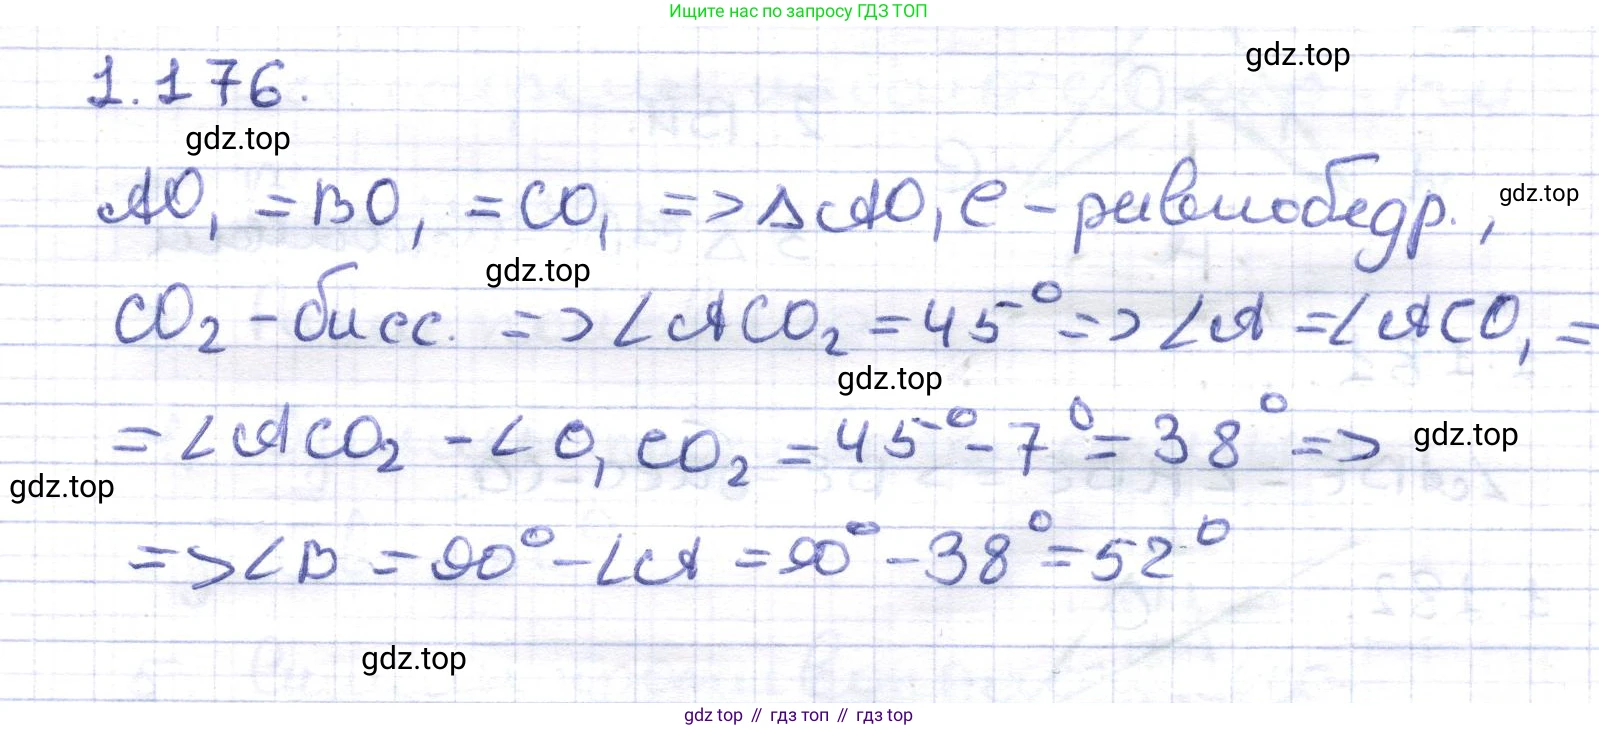 Ищите нас по запросу ГДЗ ТОП
gdz.top
1.176.
gdz.top
AO₁ = BO₁ = CO₁ => ΔAO₁C - равнобедр.,
gdz.top
gdz.top
CO₂ - бисс. => ∠ACO₂ = 45° => ∠A = ∠ACO₁ =
gdz.top
= ∠ACO₂ - ∠O₁CO₂ = 45° - 7° = 38° =>
gdz.top
gdz.top
=> ∠B = 90° - ∠A = 90° - 38° = 52°
gdz.top
gdz top // гдз топ // gdz top